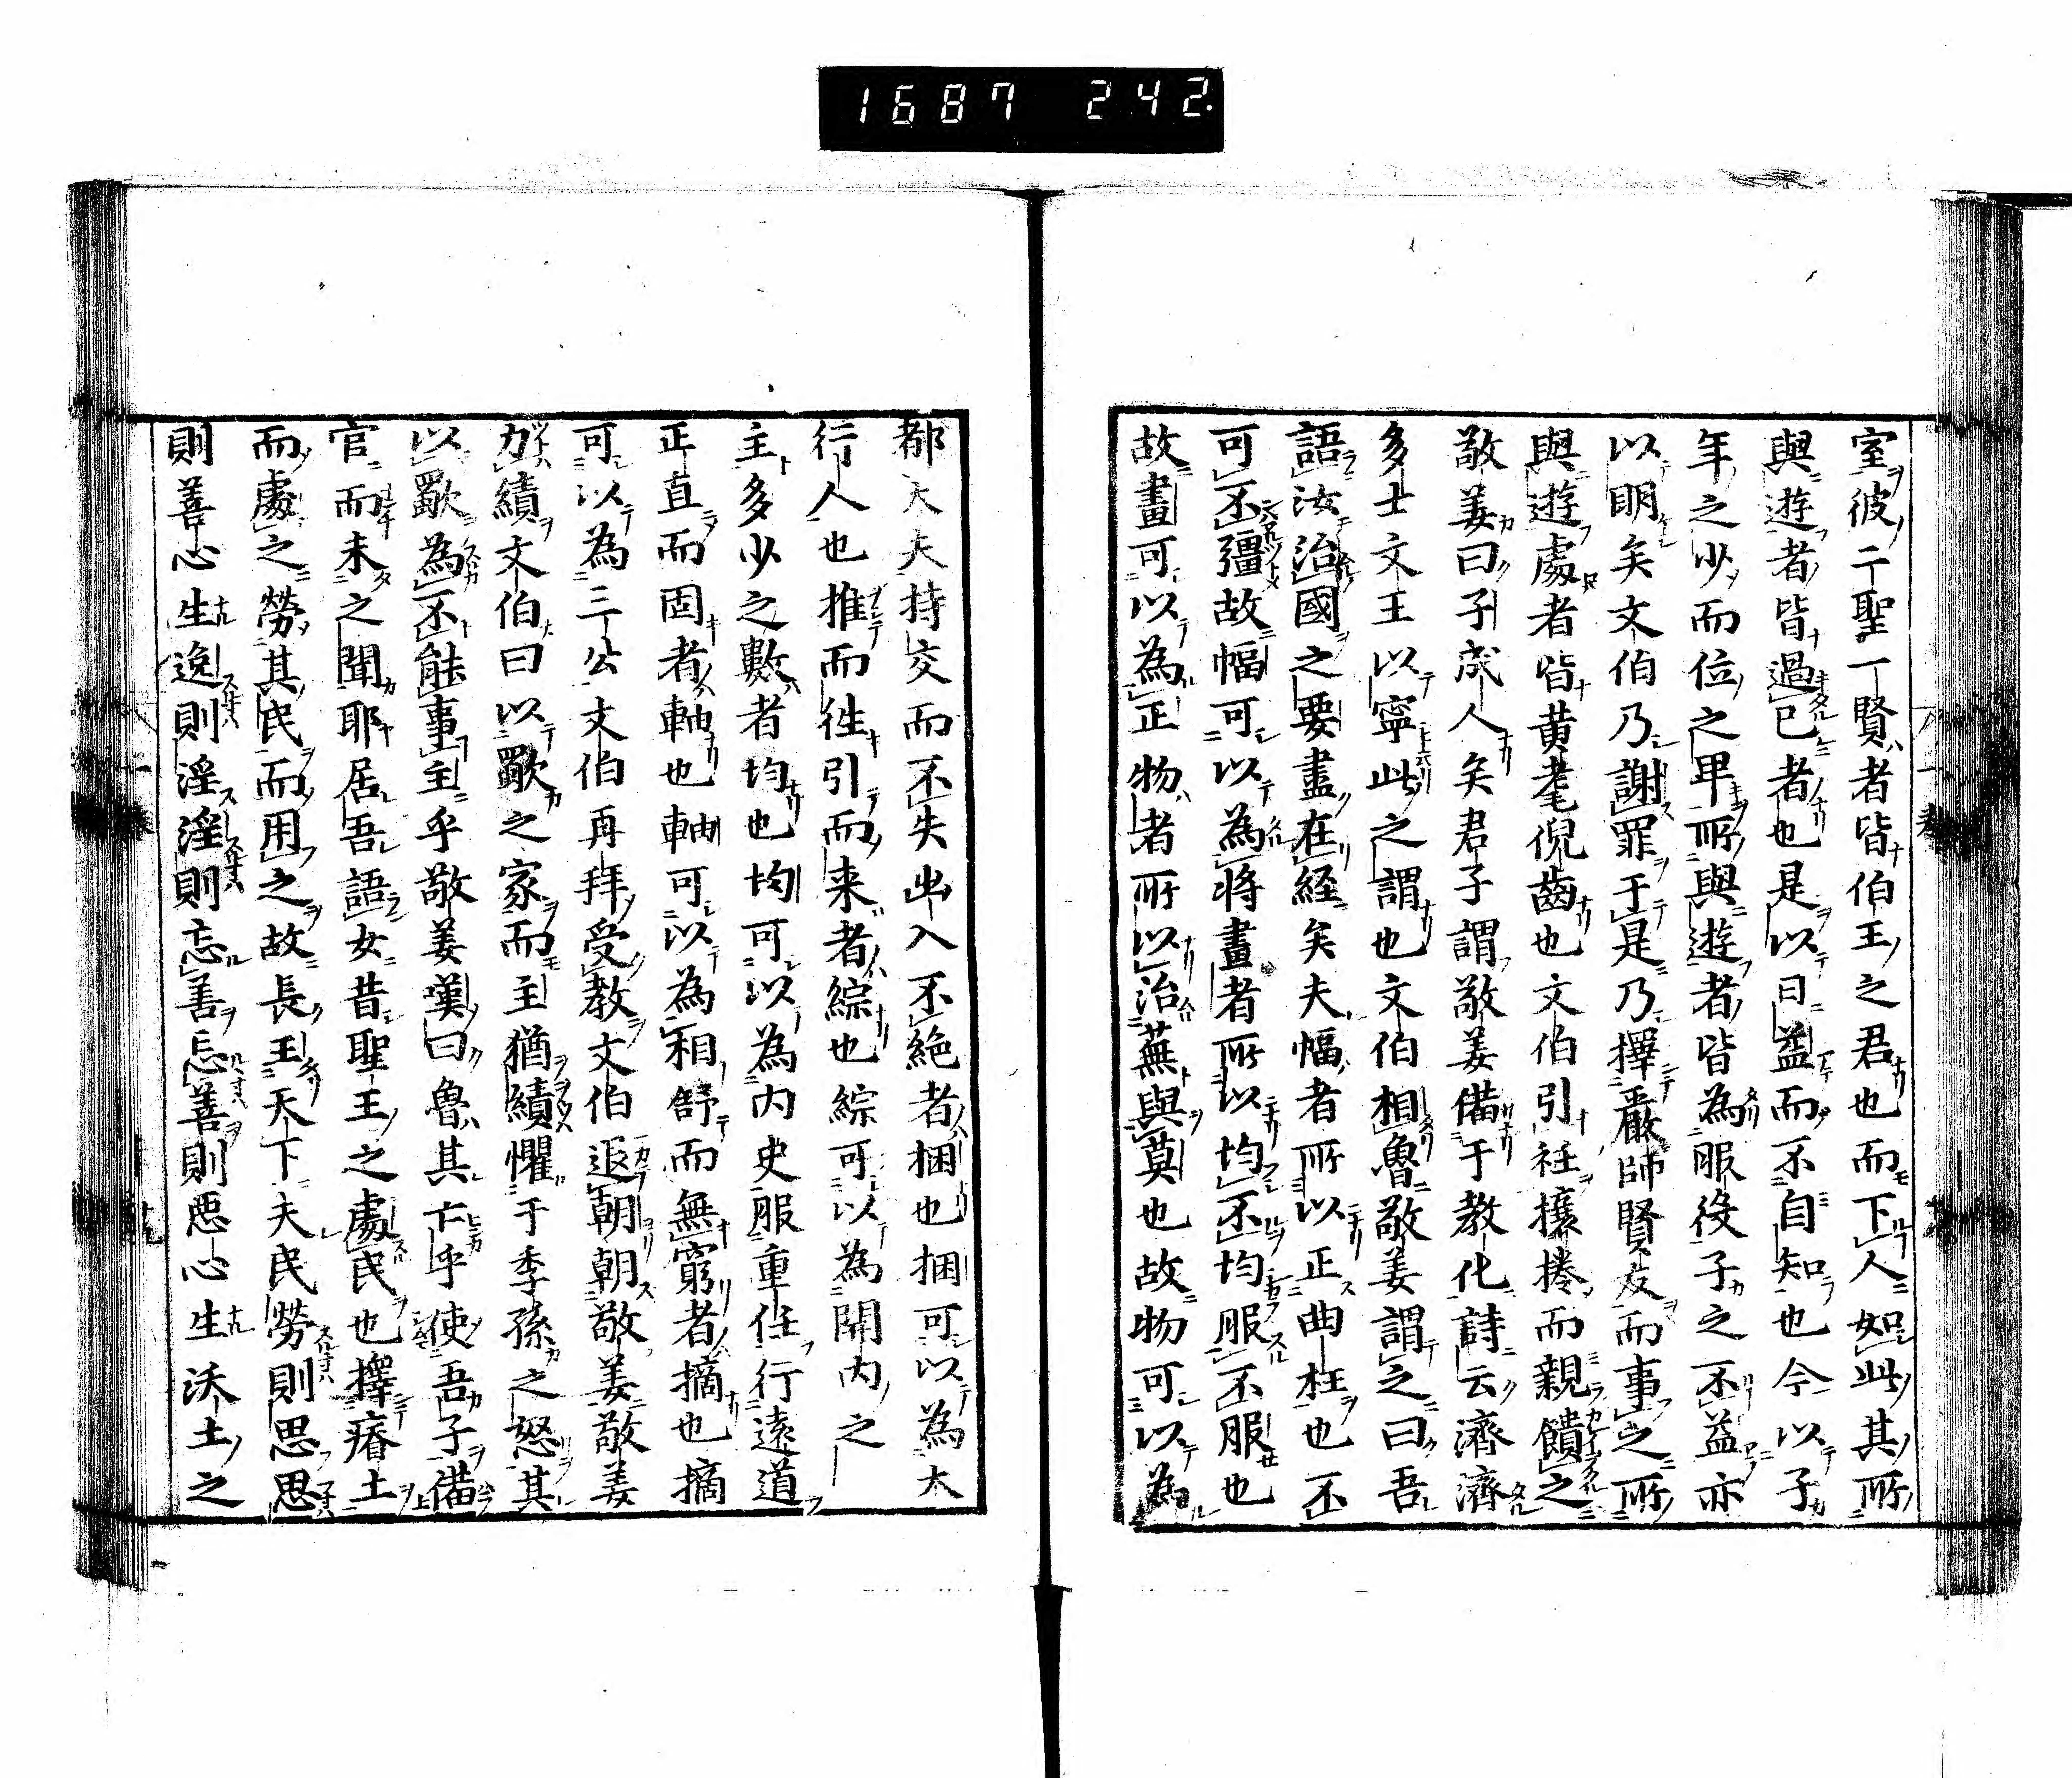 1687 242.
室彼二聖一賢者皆伯王之君也而下人如此其所
與遊者皆過已者也是以日益而不自知也今以子
年之少而位之卑所與遊者皆為服役子之不益亦
以明矣文伯乃謝罪于是乃擇嚴師賢友而事之所
與遊處者皆黄耄倪齒也文伯引衽攘捲而親饋之
敬姜曰子成人矣君子謂敬姜備于教化詩云濟濟
多士文王以寧此之謂也文伯相魯敬姜謂之曰吾
語汝治國之要盡在経矣夫幅者所以正曲枉也不
可不彊故幅可以為將畫者所以均不均服不服也
故畫可以為正物者所以治蕪與莫也故物可以為
都大夫持交而不失出入不絶者捆也捆可以為大
行人也推而徃引而来者綜也綜可以為開内之
主多少之數者均也均可以為内史服重任行遠道
正直而固者軸也軸可以為相舒而無窮者摘也摘
可以為三公文伯再拜受教文伯退朝朝敬姜敬姜
方績文伯曰以歜之家而主猶績懼于季孫之怒其
以歜為不能事主乎敬姜嘆曰魯其亡乎使吾子備
官而未之聞耶居吾語女昔聖王之處民也擇瘠土
而處之勞其民而用之故長王天下夫民勞則思思
則善心生逸則淫淫則忘善忘善則惡心生沃土之